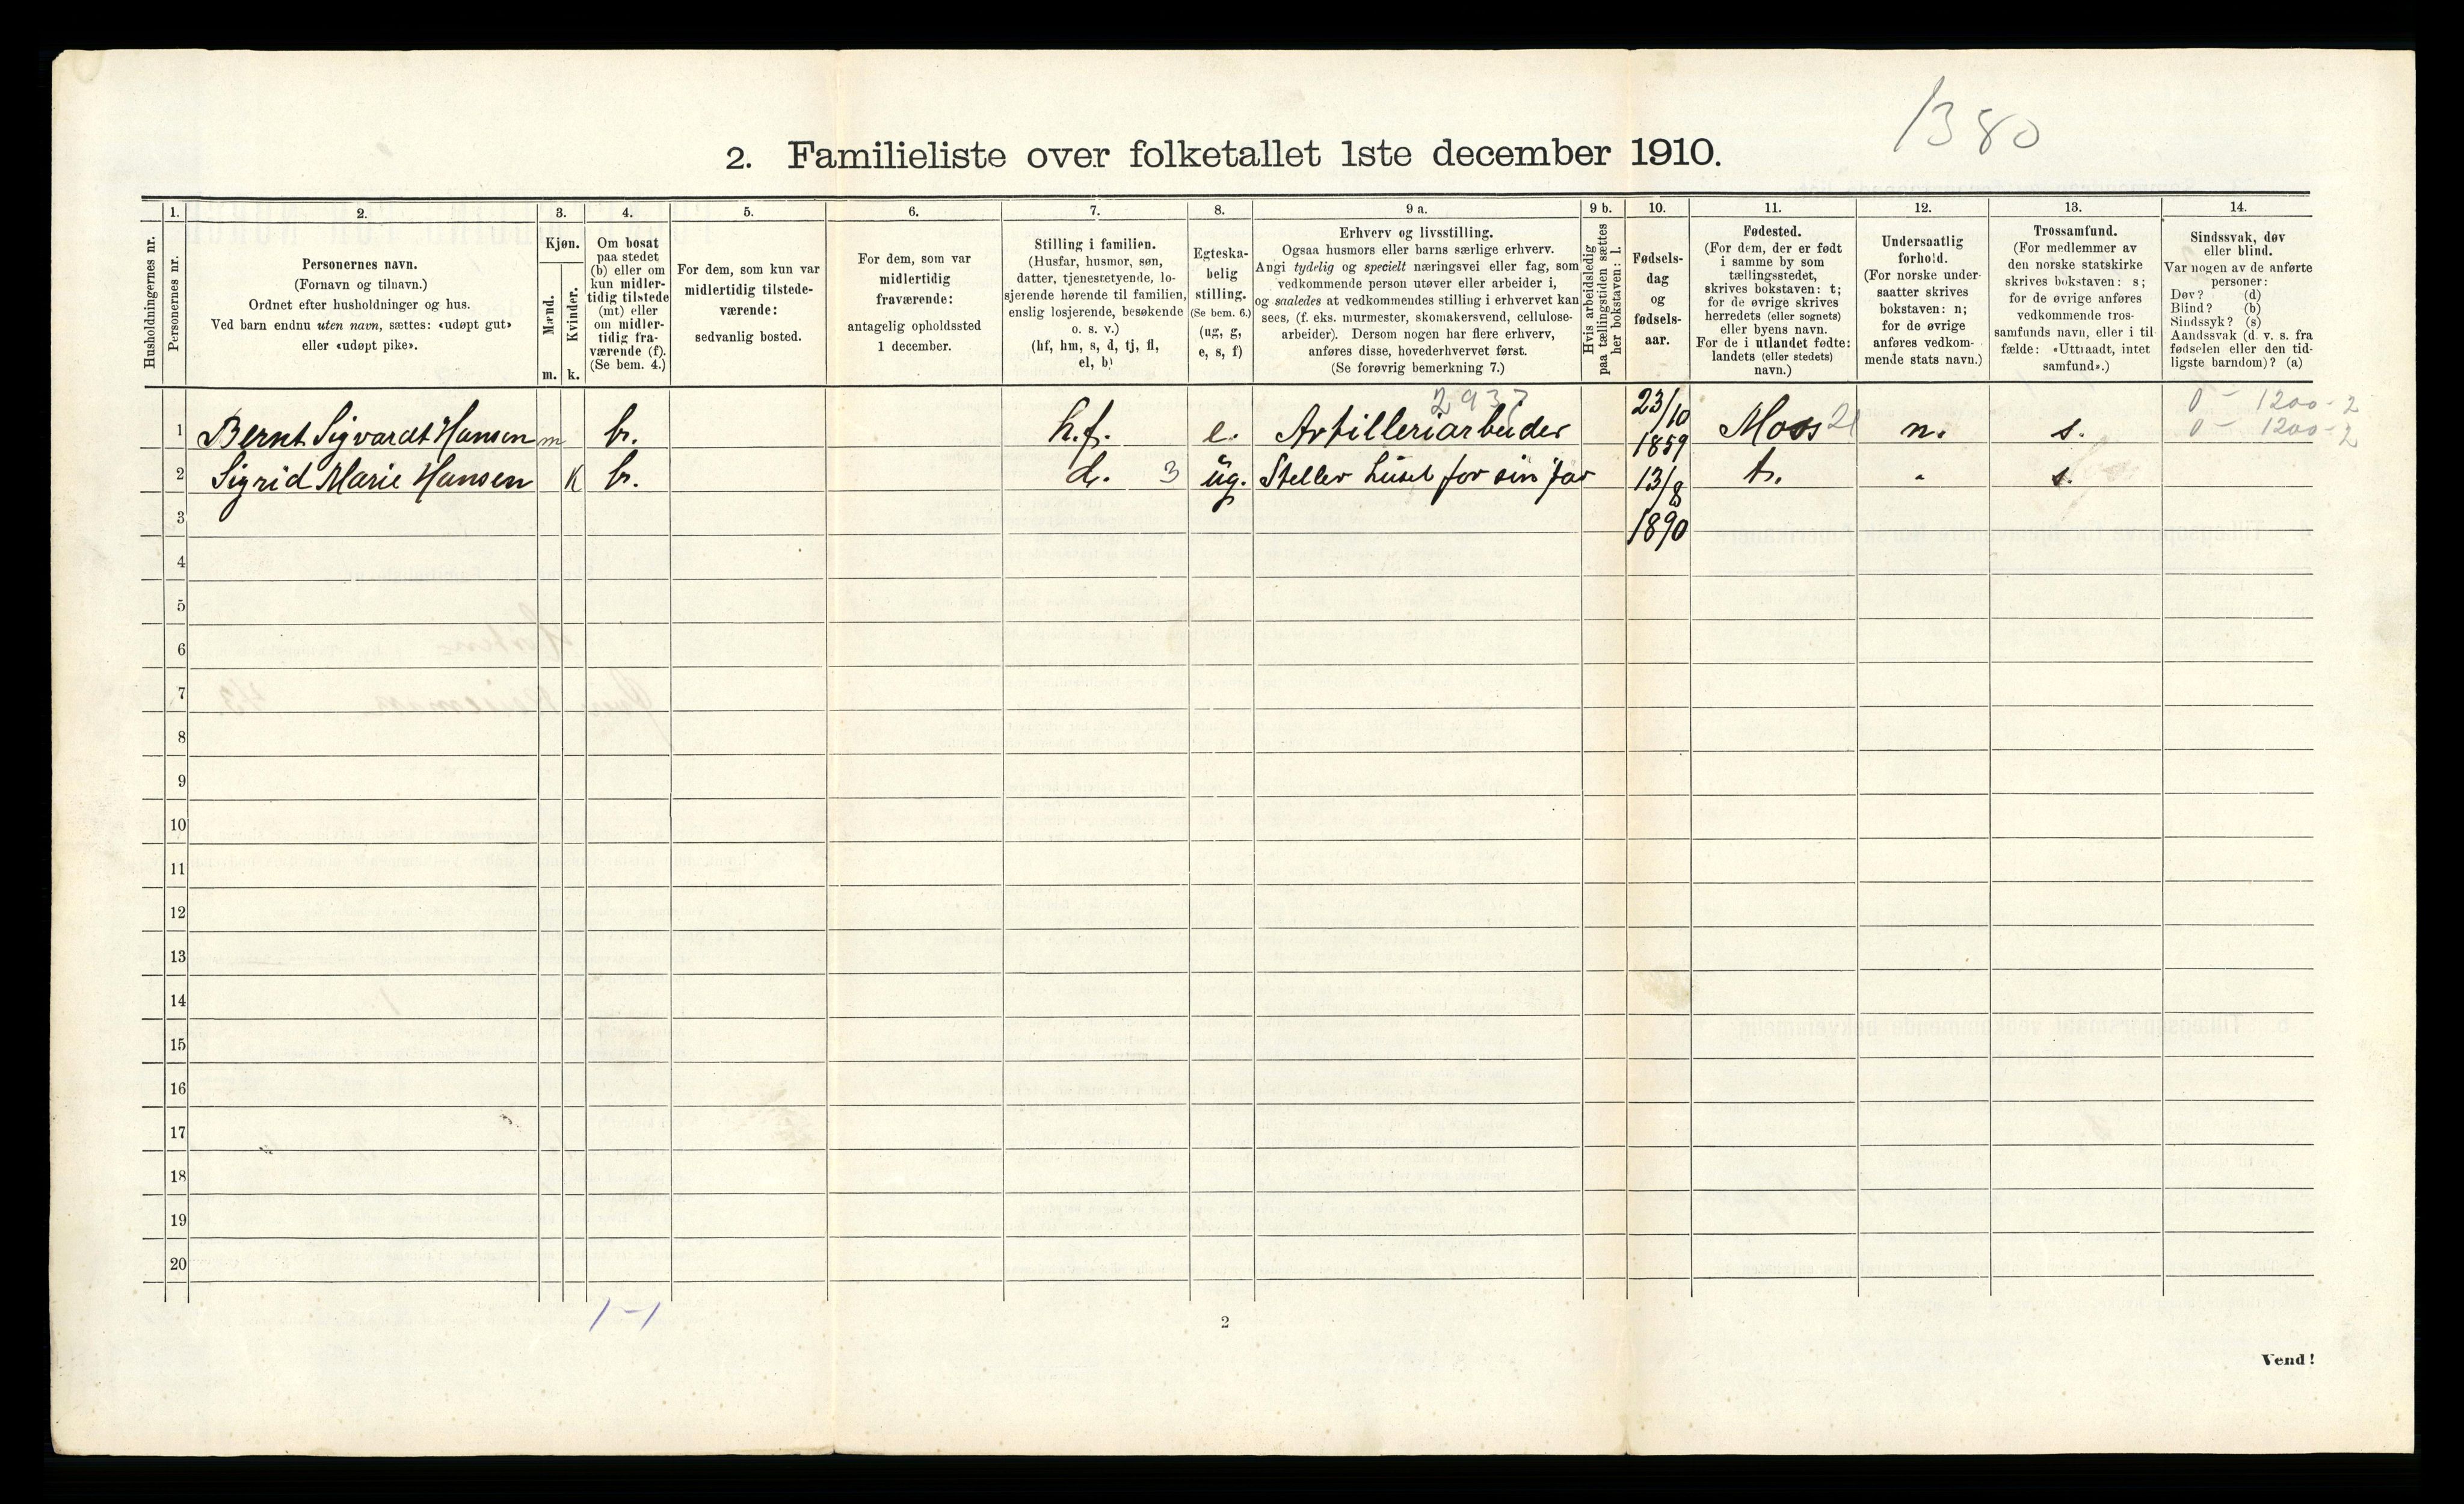 1380
2. Familieliste over folketallet 1ste december 1910.
Husholdningernes nr.
1.
Personernes nr.
2.
Personernes navn.
(Fornavn og tilnavn.)
Ordnet efter husholdninger og hus.
Ved barn endnu uten navn, sættes: «udøpt gut»
eller «udøpt pike».
3.
Kjøn.
Mænd.
m.
Kvinder.
k.
4.
Om bosat
paa stedet
(b) eller om
kun midler-
tidig tilstede
(mt) eller
om midler-
tidig fra-
værende (f).
(Se bem. 4.)
5.
For dem, som kun var
midlertidig tilstede-
værende:
sedvanlig bosted.
6.
For dem, som var
midlertidig
fraværende:
antagelig opholdssted
1 december.
7.
Stilling i familien.
(Husfar, husmor, søn,
datter, tjenestetyende, lo-
sjerende hørende til familien,
enslig losjerende, besøkende
o. s. v.)
(hf, hm, s, d, tj, fl,
el, b)
8.
Egteska-
belig
stilling.
(Se bem. 6.)
(ug, g,
e, s, f)
9 a.
Erhverv og livsstilling.
Ogsaa husmors eller barns særlige erhverv.
Angi tydelig og specielt næringsvei eller fag, som
vedkommende person utøver eller arbeider i,
og saaledes at vedkommendes stilling i erhvervet kan
sees, (f. eks. murmester, skomakersvend, cellulose-
arbeider). Dersom nogen har flere erhverv,
anføres disse, hovederhvervet først.
(Se forøvrig bemerkning 7.)
9 b.
Hvis arbeidsledig
paa tællingstiden sættes
her bokstaven: l.
10.
Fødsels-
dag
og
fødsels-
aar.
11.
Fødested.
(For dem, der er født
i samme by som
tællingsstedet,
skrives bokstaven: t;
for de øvrige skrives
herredets (eller sognets)
eller byens navn.
For de i utlandet fødte:
landets (eller stedets)
navn.)
12.
Undersaatlig
forhold.
(For norske under-
saatter skrives
bokstaven: n;
for de øvrige
anføres vedkom-
mende stats navn.)
13.
Trossamfund.
(For medlemmer av
den norske statskirke
skrives bokstaven: s;
for de øvrige anføres
vedkommende tros-
samfunds navn, eller i til-
fælde: «Uttraadt, intet
samfund».)
14.
Sindssvak, døv
eller blind.
Var nogen av de anførte
personer:
Døv? (d)
Blind? (b)
Sindssyk? (s)
Aandssvak (d. v. s. fra
fødselen eller den tid-
ligste barndom)? (a)
1 Bernt Sigvardt Hansen m b. h.f. e. 2937 Artilleriarbeider 23/10 1859 Moss 21 n. s. 0 - 1200 - 2
0 - 1200 - 2
2 Sigrid Marie Hansen K b. d. 3 ug. Steller huset for sin far 13/8 1890 t. " s.
3
4
5
6
7
8
9
10
11
12
13
14
15
16
17
18
19
20
1-1
2
Vend!